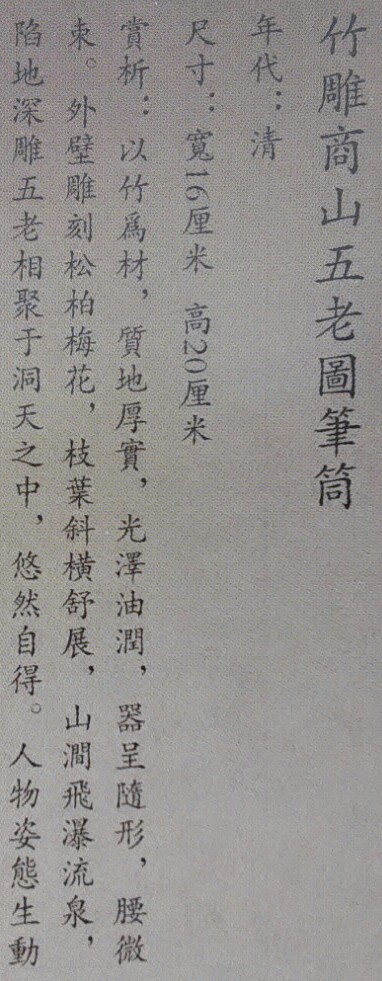 竹雕商山五老圖筆筒
年代：清
尺寸：寬16厘米 高20厘米
賞析：以竹爲材，質地厚實，光澤油潤，器呈隨形，腰微
束。外壁雕刻松柏梅花，枝葉斜橫舒展，山澗飛瀑流泉，
陷地深雕五老相聚于洞天之中，悠然自得。人物姿態生動